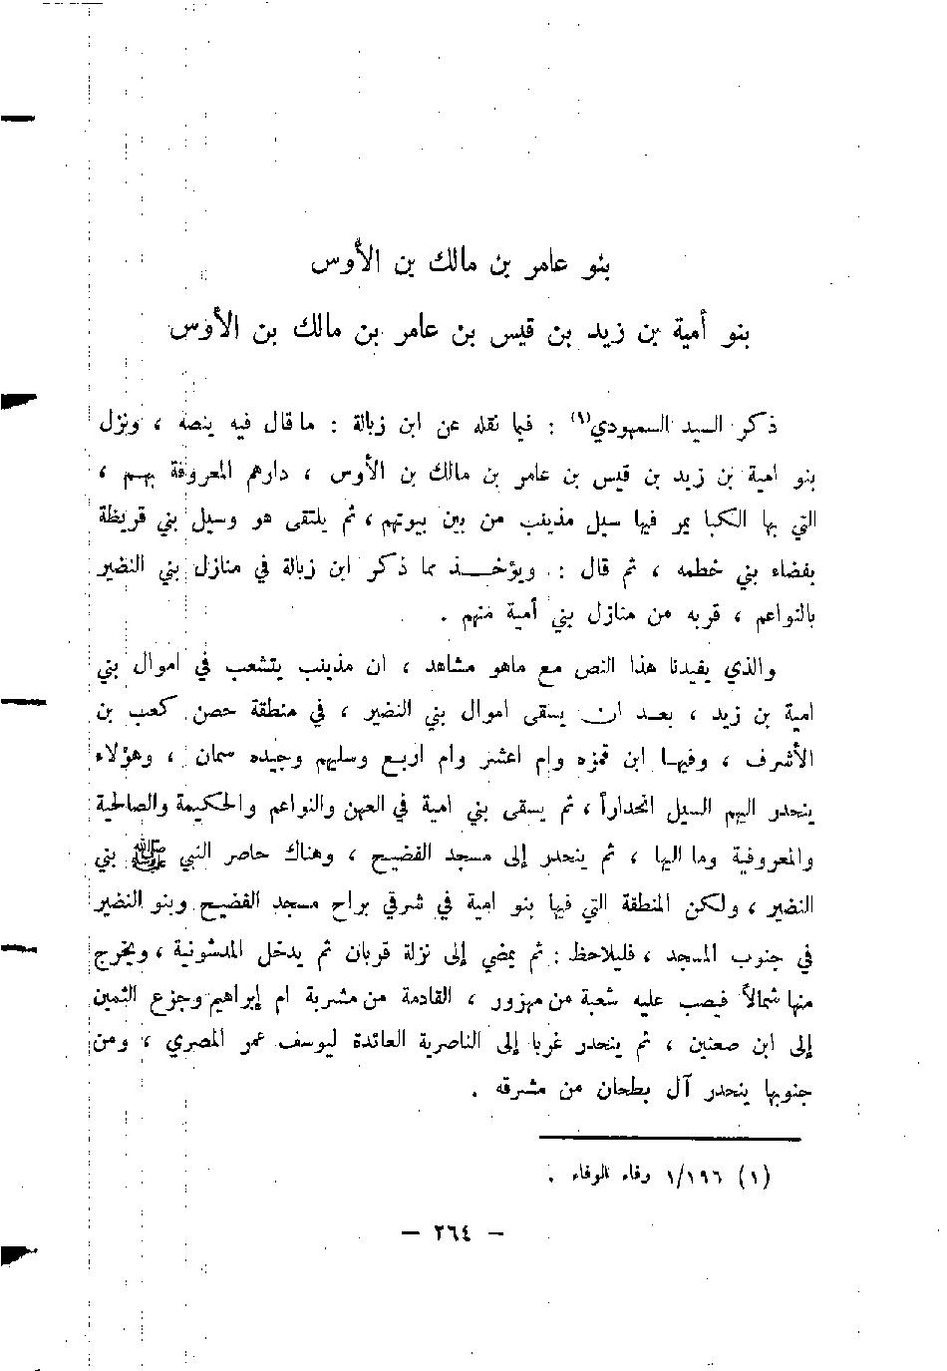 بنو عامر بن مالك بن الأوس
بنو أمية بن زيد بن قيس بن عامر بن مالك بن الأوس
ذكر السيد السمهودي(١) : فيما نقله عن ابن زبالة : ما قال فيه ينصه ، ونزل
بنو امية بن زيد بن قيس بن عامر بن مالك بن الأوس ، دارهم المعروفة بهم ،
التي بها الكبا يمر فيها سيل مذينب من بين بيوتهم ، ثم يلتقى هو وسيل بني قريظة
بفضاء بني خطمه ، ثم قال : ويؤخذ مما ذكر ابن زبالة في منازل بني النضير
بالنواعم ، قربه من منازل بني أمية منهم .
والذي يفيدنا هذا النص مع ماهو مشاهد ، ان مذينب يتشعب في اموال بني
امية بن زيد ، بعد ان يسقى اموال بني النضير ، في منطقة حصن كعب بن
الأشرف ، وفيها ابن قمزه وام اعشر وام اربع وسليهم وجيده سمان ، وهؤلاء
ينحدر اليهم السيل انحداراً ، ثم يسقى بني امية في العهن والنواعم والحكيمة والصالحية
والمعروفية وما اليها ، ثم ينحدر إلى مسجد الفضيح ، وهناك حاصر النبي ﷺ بني
النضير ، ولكن المنطقة التي فيها بنو امية في شرقي براح مسجد الفضيح وبنو النضير
في جنوب المسجد ، فليلاحظ : ثم يمضي إلى نزلة قربان ثم يدخل المدشونية ، ويخرج
منها شمالاً فيصب عليه شعبة من مهزور ، القادمة من مشربة ام إبراهيم وجزع الثمين
إلى ابن صعنين ، ثم ينحدر غربا إلى الناصرية العائدة ليوسف عمر المصري ، ومن
جنوبها ينحدر آل بطحان من مشرقه .
(١) ١/١٩٦ وفاء الوفاء .
— ٢٦٤ —